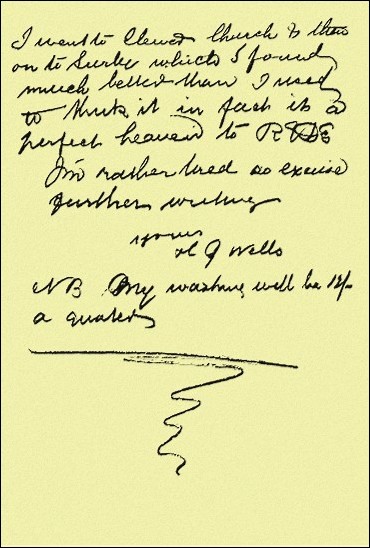 I went to Clewer Church & then
on to Surly which I found
much better than I used
to think it in fact its a
perfect heaven to
I'm rather tired so excuse
further writing
yours
H G Wells
NB My washing will be
a quarter